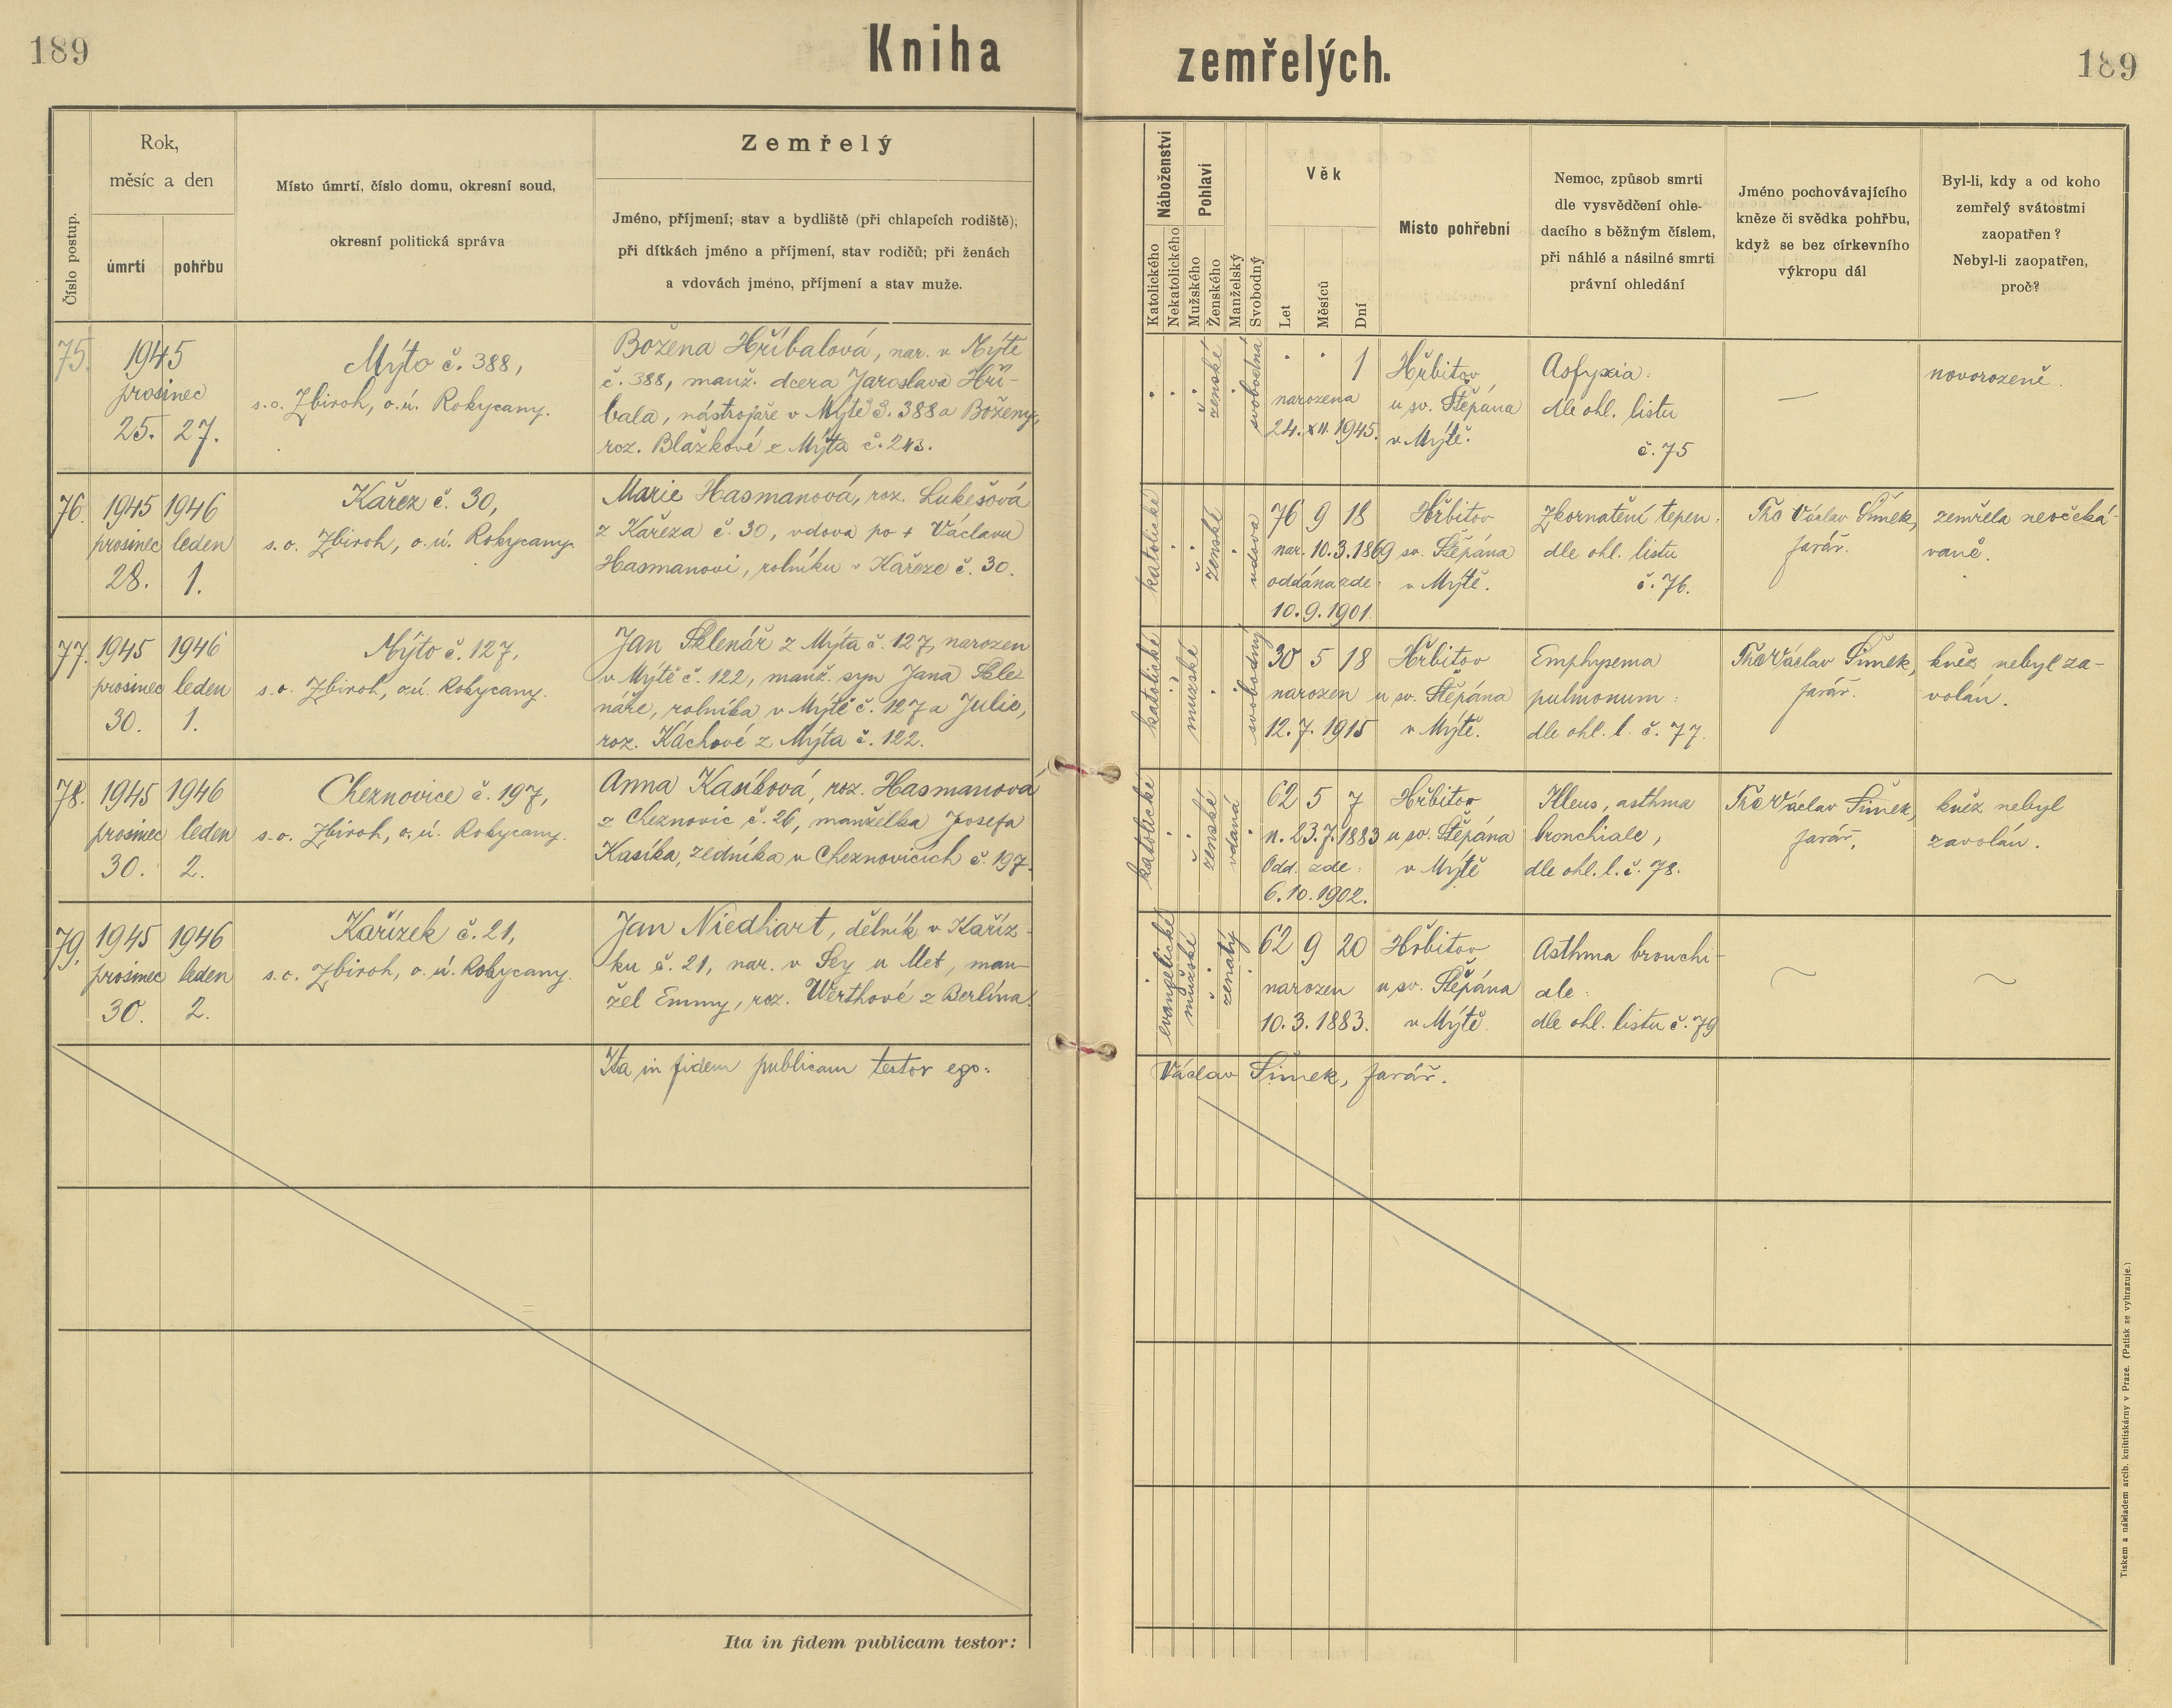 189
Kniha zemřelých.
189
Číslo postup.
Rok,
měsíc a den
úmrtí
pohřbu
Místo úmrtí, číslo domu, okresní soud,
okresní politická správa
Zemřelý
Jméno, příjmení; stav a bydliště (při chlapcích rodiště);
při dítkách jméno a příjmení, stav rodičů; při ženách
a vdovách jméno, příjmení a stav muže.
Náboženství
Katolického
Nekatolického
Pohlaví
Mužského
Ženského
Manželský
Svobodný
Věk
Let
Měsíců
Dní
Místo pohřební
Nemoc, způsob smrti
dle vysvědčení ohle-
dacího s běžným číslem,
při náhlé a násilné smrti
právní ohledání
Jméno pochovávajícího
kněze či svědka pohřbu,
když se bez církevního
výkropu dál
Byl-li, kdy a od koho
zemřelý svátostmi
zaopatřen?
Nebyl-li zaopatřen,
proč?
75.
1945
prosinec
25. 27.
Mýto č. 388,
s.o. Zbiroh, o.ú. Rokycany.
Božena Hříbalová, nar. v Mýtě
č. 388, manž. dcera Jaroslava Hří-
bala, nástrojaře v Mýtě č. 388 a Boženy,
roz. Blažkové z Mýta č. 243.
ženské
svobodná
1
narozena
24. XII. 1945.
Hřbitov
u sv. Štěpána
v Mýtě.
Asfyxia:
dle ohl. listu
č. 75
—
novorozeně.
76.
1945 1946
prosinec leden
28. 1.
Kařez č. 30,
s.o. Zbiroh, o.ú. Rokycany.
Marie Hasmanová, roz. Lukešová
z Kařeza č. 30, vdova po + Václavu
Hasmanovi, rolníku v Kařeze č. 30.
katolické
ženské
vdova
76 9 18
nar. 10.3.1869
oddána zde:
10.9.1901.
Hřbitov
sv. Štěpána
v Mýtě.
Zkornatění tepen:
dle ohl. listu
č. 76.
Václav Šimek,
farář.
zemřela neočeká-
vaně.
77.
1945 1946
prosinec leden
30. 1.
Mýto č. 127,
s.o. Zbiroh, o.ú. Rokycany.
Jan Sklenář z Mýta č. 127, narozen
v Mýtě č. 122, manž. syn Jana Skle
náře, rolníka v Mýtě č. 127 a Julie,
roz. Káchové z Mýta č. 122.
katolické
mužské
svobodný
30 5 18
narozen
12.7.1915
Hřbitov
u sv. Štěpána
v Mýtě.
Emphysema
pulmonum:
dle ohl. l. č. 77.
Václav Šimek,
farář.
kněz nebyl za-
volán.
78.
1945 1946
prosinec leden
30. 2.
Cheznovice č. 197,
s.o. Zbiroh, o.ú. Rokycany.
Anna Kasíková, roz. Hasmanová
z Cheznovic č. 26, manželka Josefa
Kasíka, zedníka v Cheznovicích č. 197.
katolické
ženské
vdaná
62 5 7
n. 23.7.1883
Odd. zde:
6.10.1902.
Hřbitov
u sv. Štěpána
v Mýtě
asthma
bronchiale,
dle ohl. l. č. 78.
Václav Šimek,
farář,
kněz nebyl
zavolán.
79.
1945 1946
prosinec leden
30. 2.
Kařízek č. 21,
s.o. Zbiroh, o.ú. Rokycany.
Jan Niedhart, dělník v Kaříz-
ku č. 21, nar. v Sey u Met, man-
žel Emmy, roz. Werthové z Berlína.
evangelické
mužské
ženatý
62 9 20
narozen
10.3.1883.
Hřbitov
u sv. Štěpána
v Mýtě.
Asthma bronchi-
ale:
dle ohl. listu č. 79
Ita in fidem publicam testor ego:
Václav Šimek, farář.
Ita in fidem publicam testor:
Tiskem a nákladem arcib. knihtiskárny v Praze. (Patisk se vyhrazuje.)